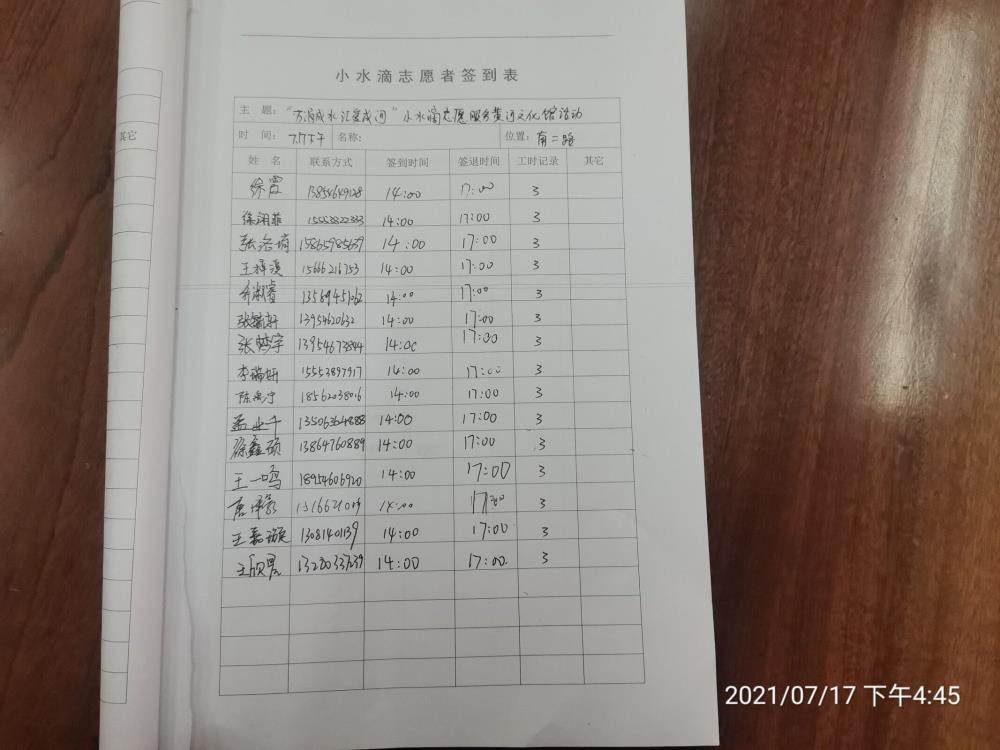 小水滴志愿者签到表
主 题: "万涓成水 汇爱成河" 小水滴志愿服务黄河文化馆活动
时 间: 7.17下午 名称: 位置: 南二路
其它
姓 名 联系方式 签到时间 签退时间 工时记录 其它
徐霞 13854649128 14:00 17:00 3
徐湘菲 15553822333 14:00 17:00 3
张洛瑜 15865985639 14:00 17:00 3
王梓溪 15666216753 14:00 17:00 3
14:00 17:00 3
张毓轩 13954620632 14:00 17:00 3
张梦宇 13954673844 14:00 17:00 3
李瑞妍 15553897917 14:00 17:00 3
18562038016 14:00 17:00 3
13506364888 14:00 17:00 3
徐鑫硕 13864760889 14:00 17:00 3
王一鸣 18954606920 14:00 17:00 3
14:00 17:00 3
王嘉璇 14:00 17:00 3
14:00 17:00. 3
2021/07/17 下午4:45